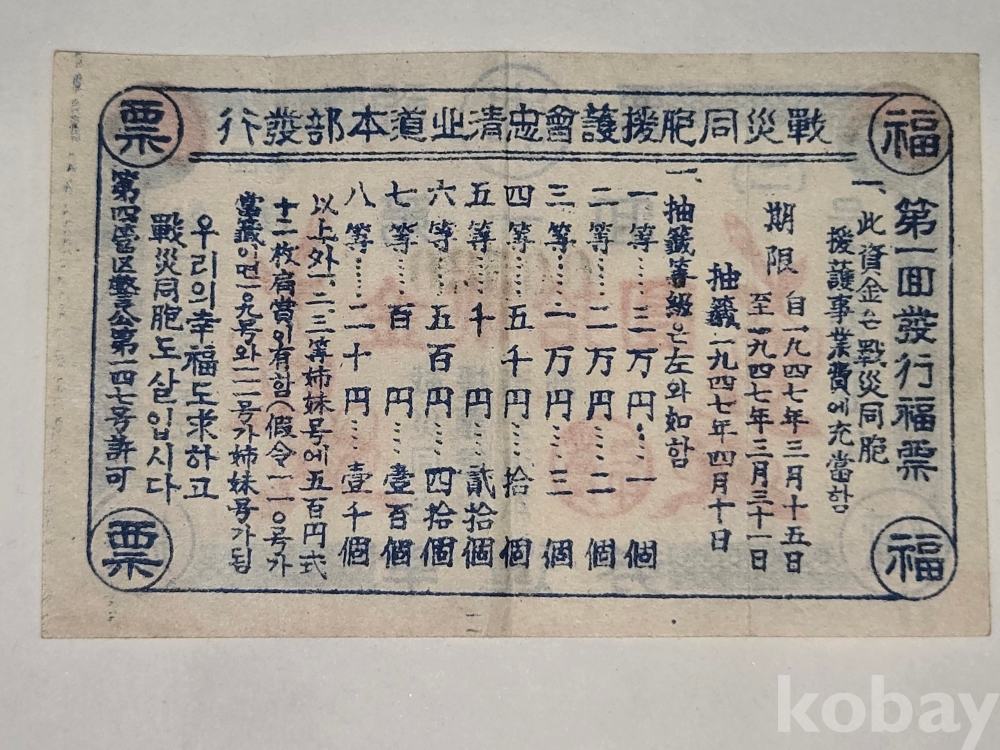 戰災同胞援護會忠淸北道本部發行
福
福
票
票
第一回發行福票
一、此資金은戰災同胞
援護事業費에充當함
期限 自一九四七年三月十五日
至一九四七年三月三十一日
抽籤一九四七年四月十日
一、抽籤等級은左와如함
一等……三万円……一個
二等……二万円……二個
三等……一万円……三個
四等……五千円……拾個
五等……千円……貳拾個
六等……五百円……四拾個
七等……百円……壹百個
八等……二十円……壹千個
以上外一、二、三等姉妹号에五百円式
十二枚 當이有함(假令一一〇号가
當籤이면一〇九号와一一一号가姉妹号가됨
우리의幸福도求하고
戰災同胞도살입시다
第四管区警公第一四七号許可
kobay